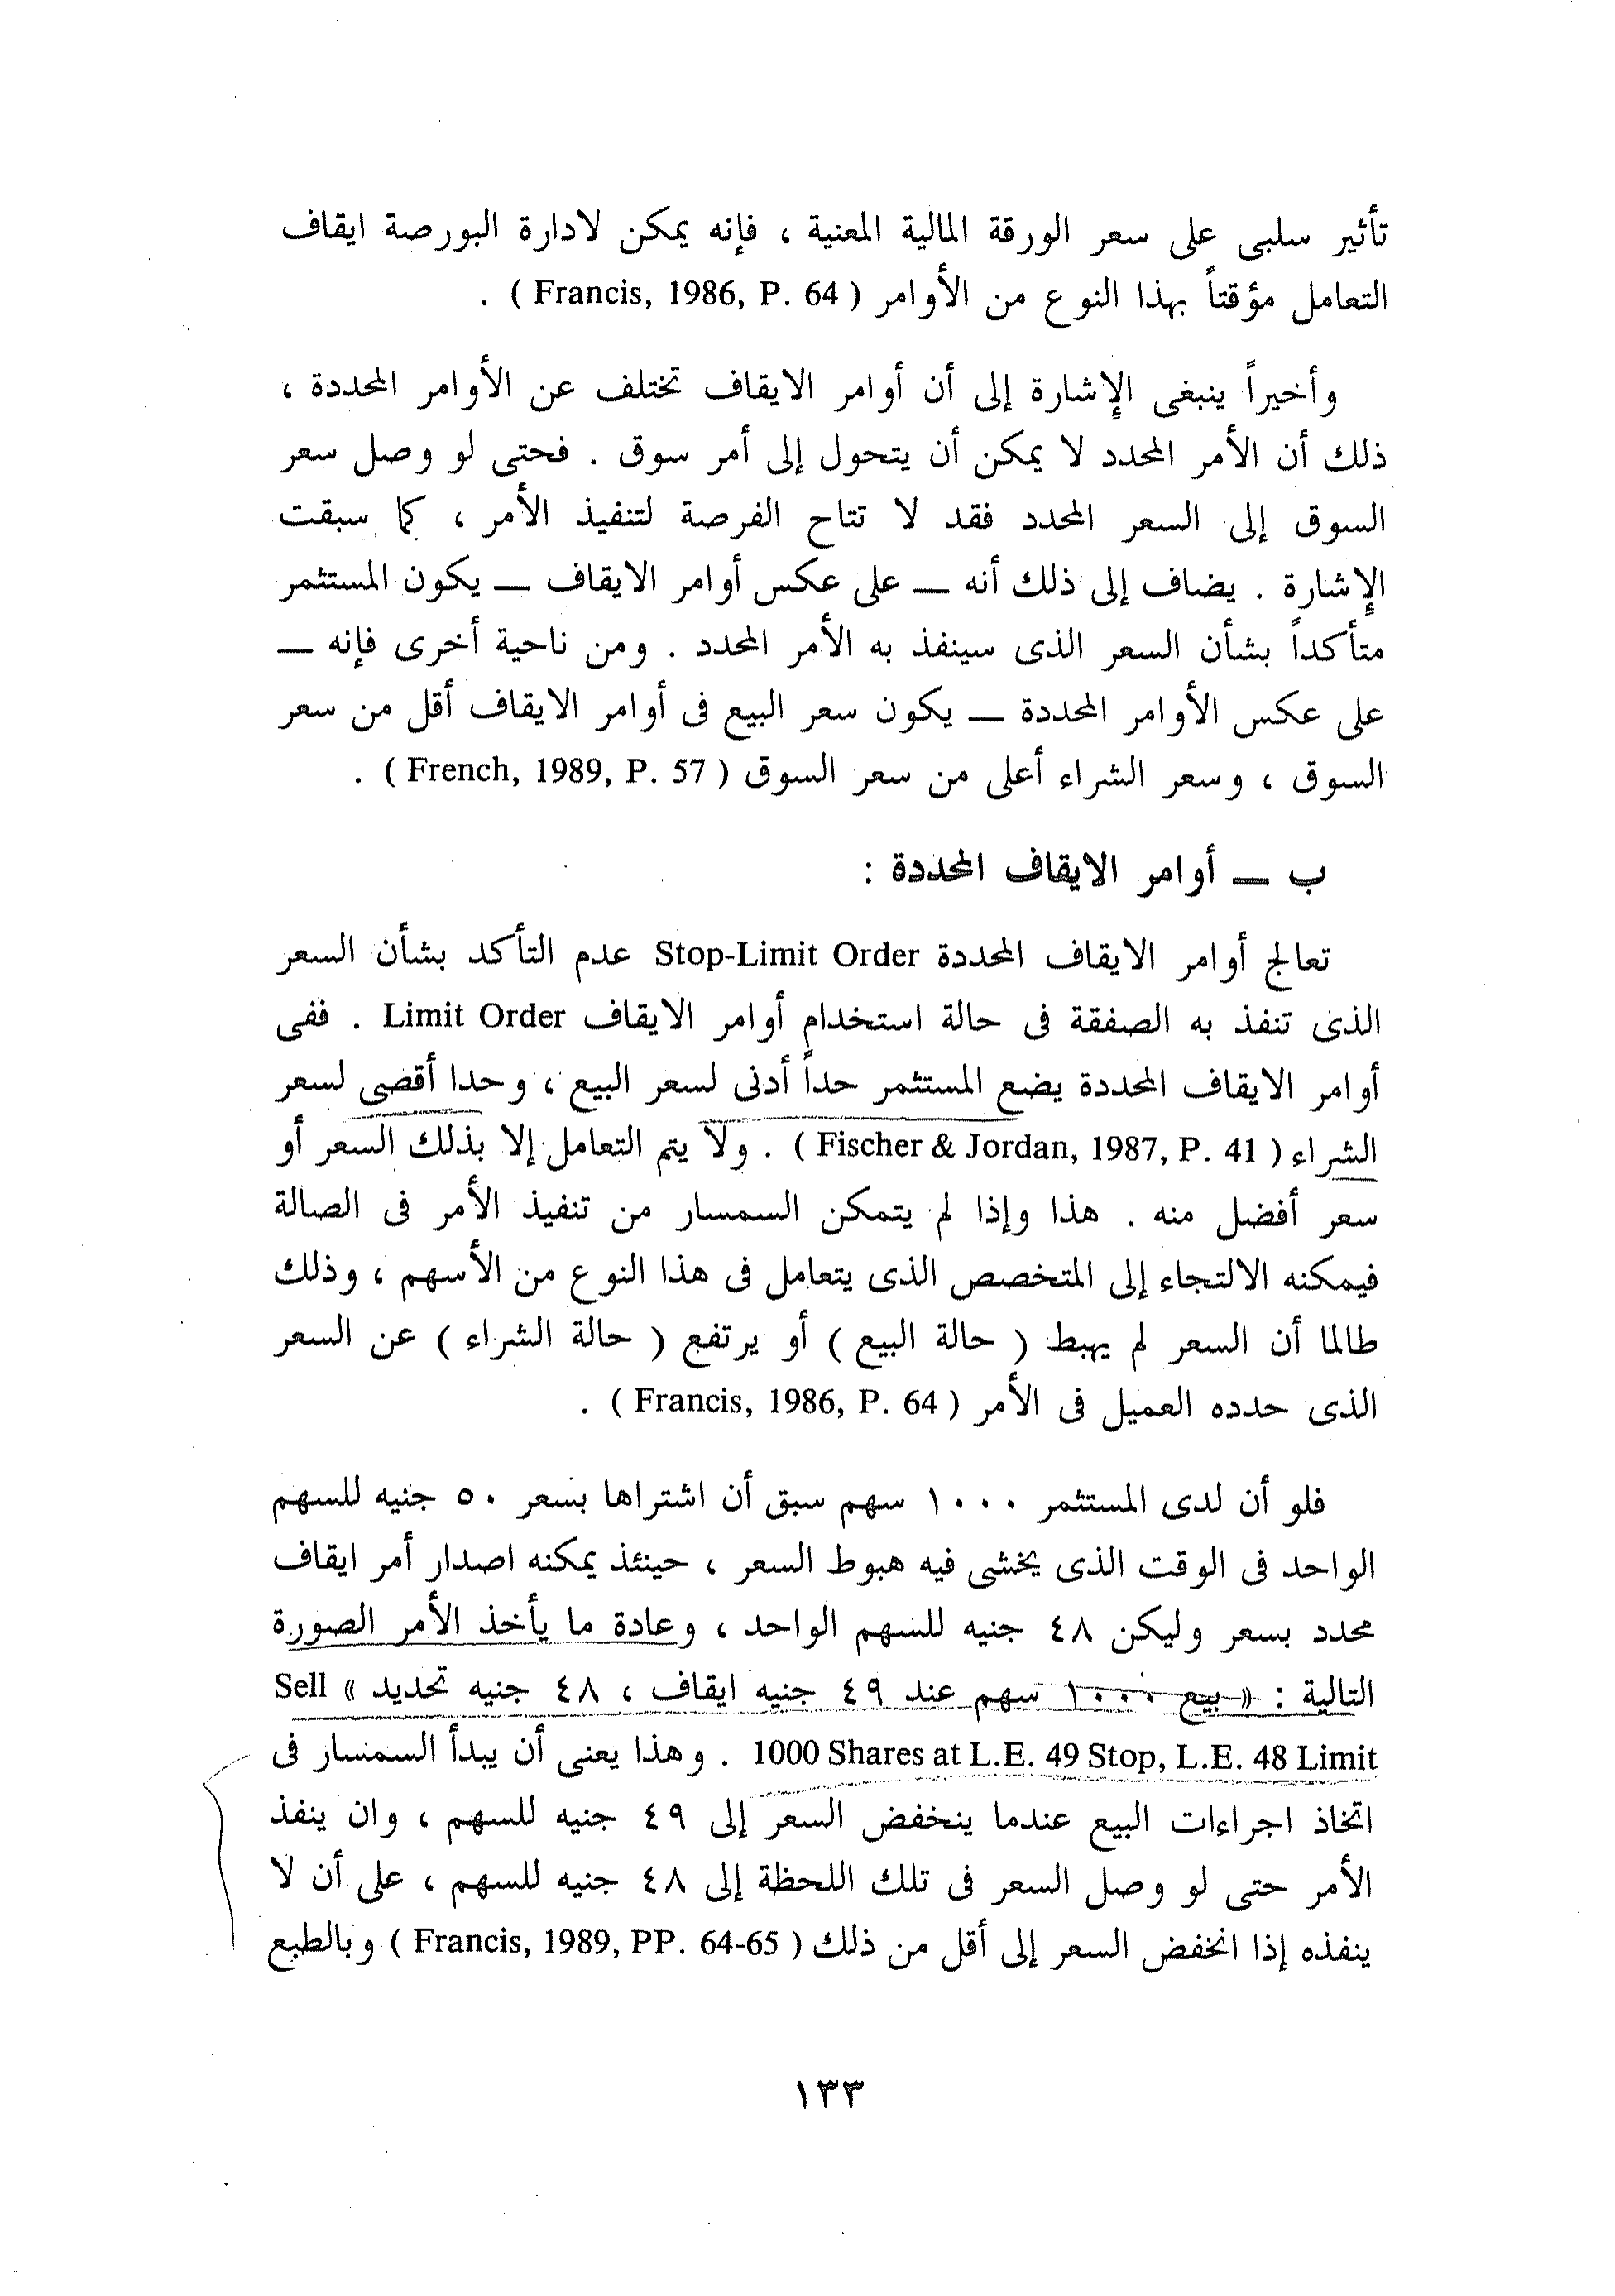 تأثير سلبى على سعر الورقة المالية المعنية ، فإنه يمكن لادارة البورصة ايقاف
التعامل مؤقتاً بهذا النوع من الأوامر ( Francis, 1986, P. 64 ) .
وأخيراً ينبغى الإشارة إلى أن أوامر الايقاف تختلف عن الأوامر المحددة ،
ذلك أن الأمر المحدد لا يمكن أن يتحول إلى أمر سوق . فحتى لو وصل سعر
السوق إلى السعر المحدد فقد لا تتاح الفرصة لتنفيذ الأمر ، كما سبقت
الإشارة . يضاف إلى ذلك أنه — على عكس أوامر الايقاف — يكون المستثمر
متأكداً بشأن السعر الذى سينفذ به الأمر المحدد . ومن ناحية أخرى فإنه —
على عكس الأوامر المحددة — يكون سعر البيع فى أوامر الايقاف أقل من سعر
السوق ، وسعر الشراء أعلى من سعر السوق ( French, 1989, P. 57 ) .
ب — أوامر الايقاف المحددة :
تعالج أوامر الايقاف المحددة Stop-Limit Order عدم التأكد بشأن السعر
الذى تنفذ به الصفقة فى حالة استخدام أوامر الايقاف Limit Order . ففى
أوامر الايقاف المحددة يضع المستثمر حداً أدنى لسعر البيع ، وحدا أقصى لسعر
الشراء ( Fischer & Jordan, 1987, P. 41 ) . ولا يتم التعامل إلا بذلك السعر أو
سعر أفضل منه . هذا وإذا لم يتمكن السمسار من تنفيذ الأمر فى الصالة
فيمكنه الالتجاء إلى المتخصص الذى يتعامل فى هذا النوع من الأسهم ، وذلك
طالما أن السعر لم يهبط ( حالة البيع ) أو يرتفع ( حالة الشراء ) عن السعر
الذى حدده العميل فى الأمر ( Francis, 1986, P. 64 ) .
فلو أن لدى المستثمر ١٠٠٠ سهم سبق أن اشتراها بسعر ٥٠ جنيه للسهم
الواحد فى الوقت الذى يخشى فيه هبوط السعر ، حينئذ يمكنه اصدار أمر ايقاف
محدد بسعر وليكن ٤٨ جنيه للسهم الواحد ، وعادة ما يأخذ الأمر الصورة
التالية : « بيع ١٠٠٠ سهم عند ٤٩ جنيه ايقاف ، ٤٨ جنيه تحديد » Sell
1000 Shares at L.E. 49 Stop, L.E. 48 Limit . وهذا يعنى أن يبدأ السمسار فى
اتخاذ اجراءات البيع عندما ينخفض السعر إلى ٤٩ جنيه للسهم ، وان ينفذ
الأمر حتى لو وصل السعر فى تلك اللحظة إلى ٤٨ جنيه للسهم ، على أن لا
ينفذه إذا انخفض السعر إلى أقل من ذلك ( Francis, 1989, PP. 64-65 ) وبالطبع
١٣٣